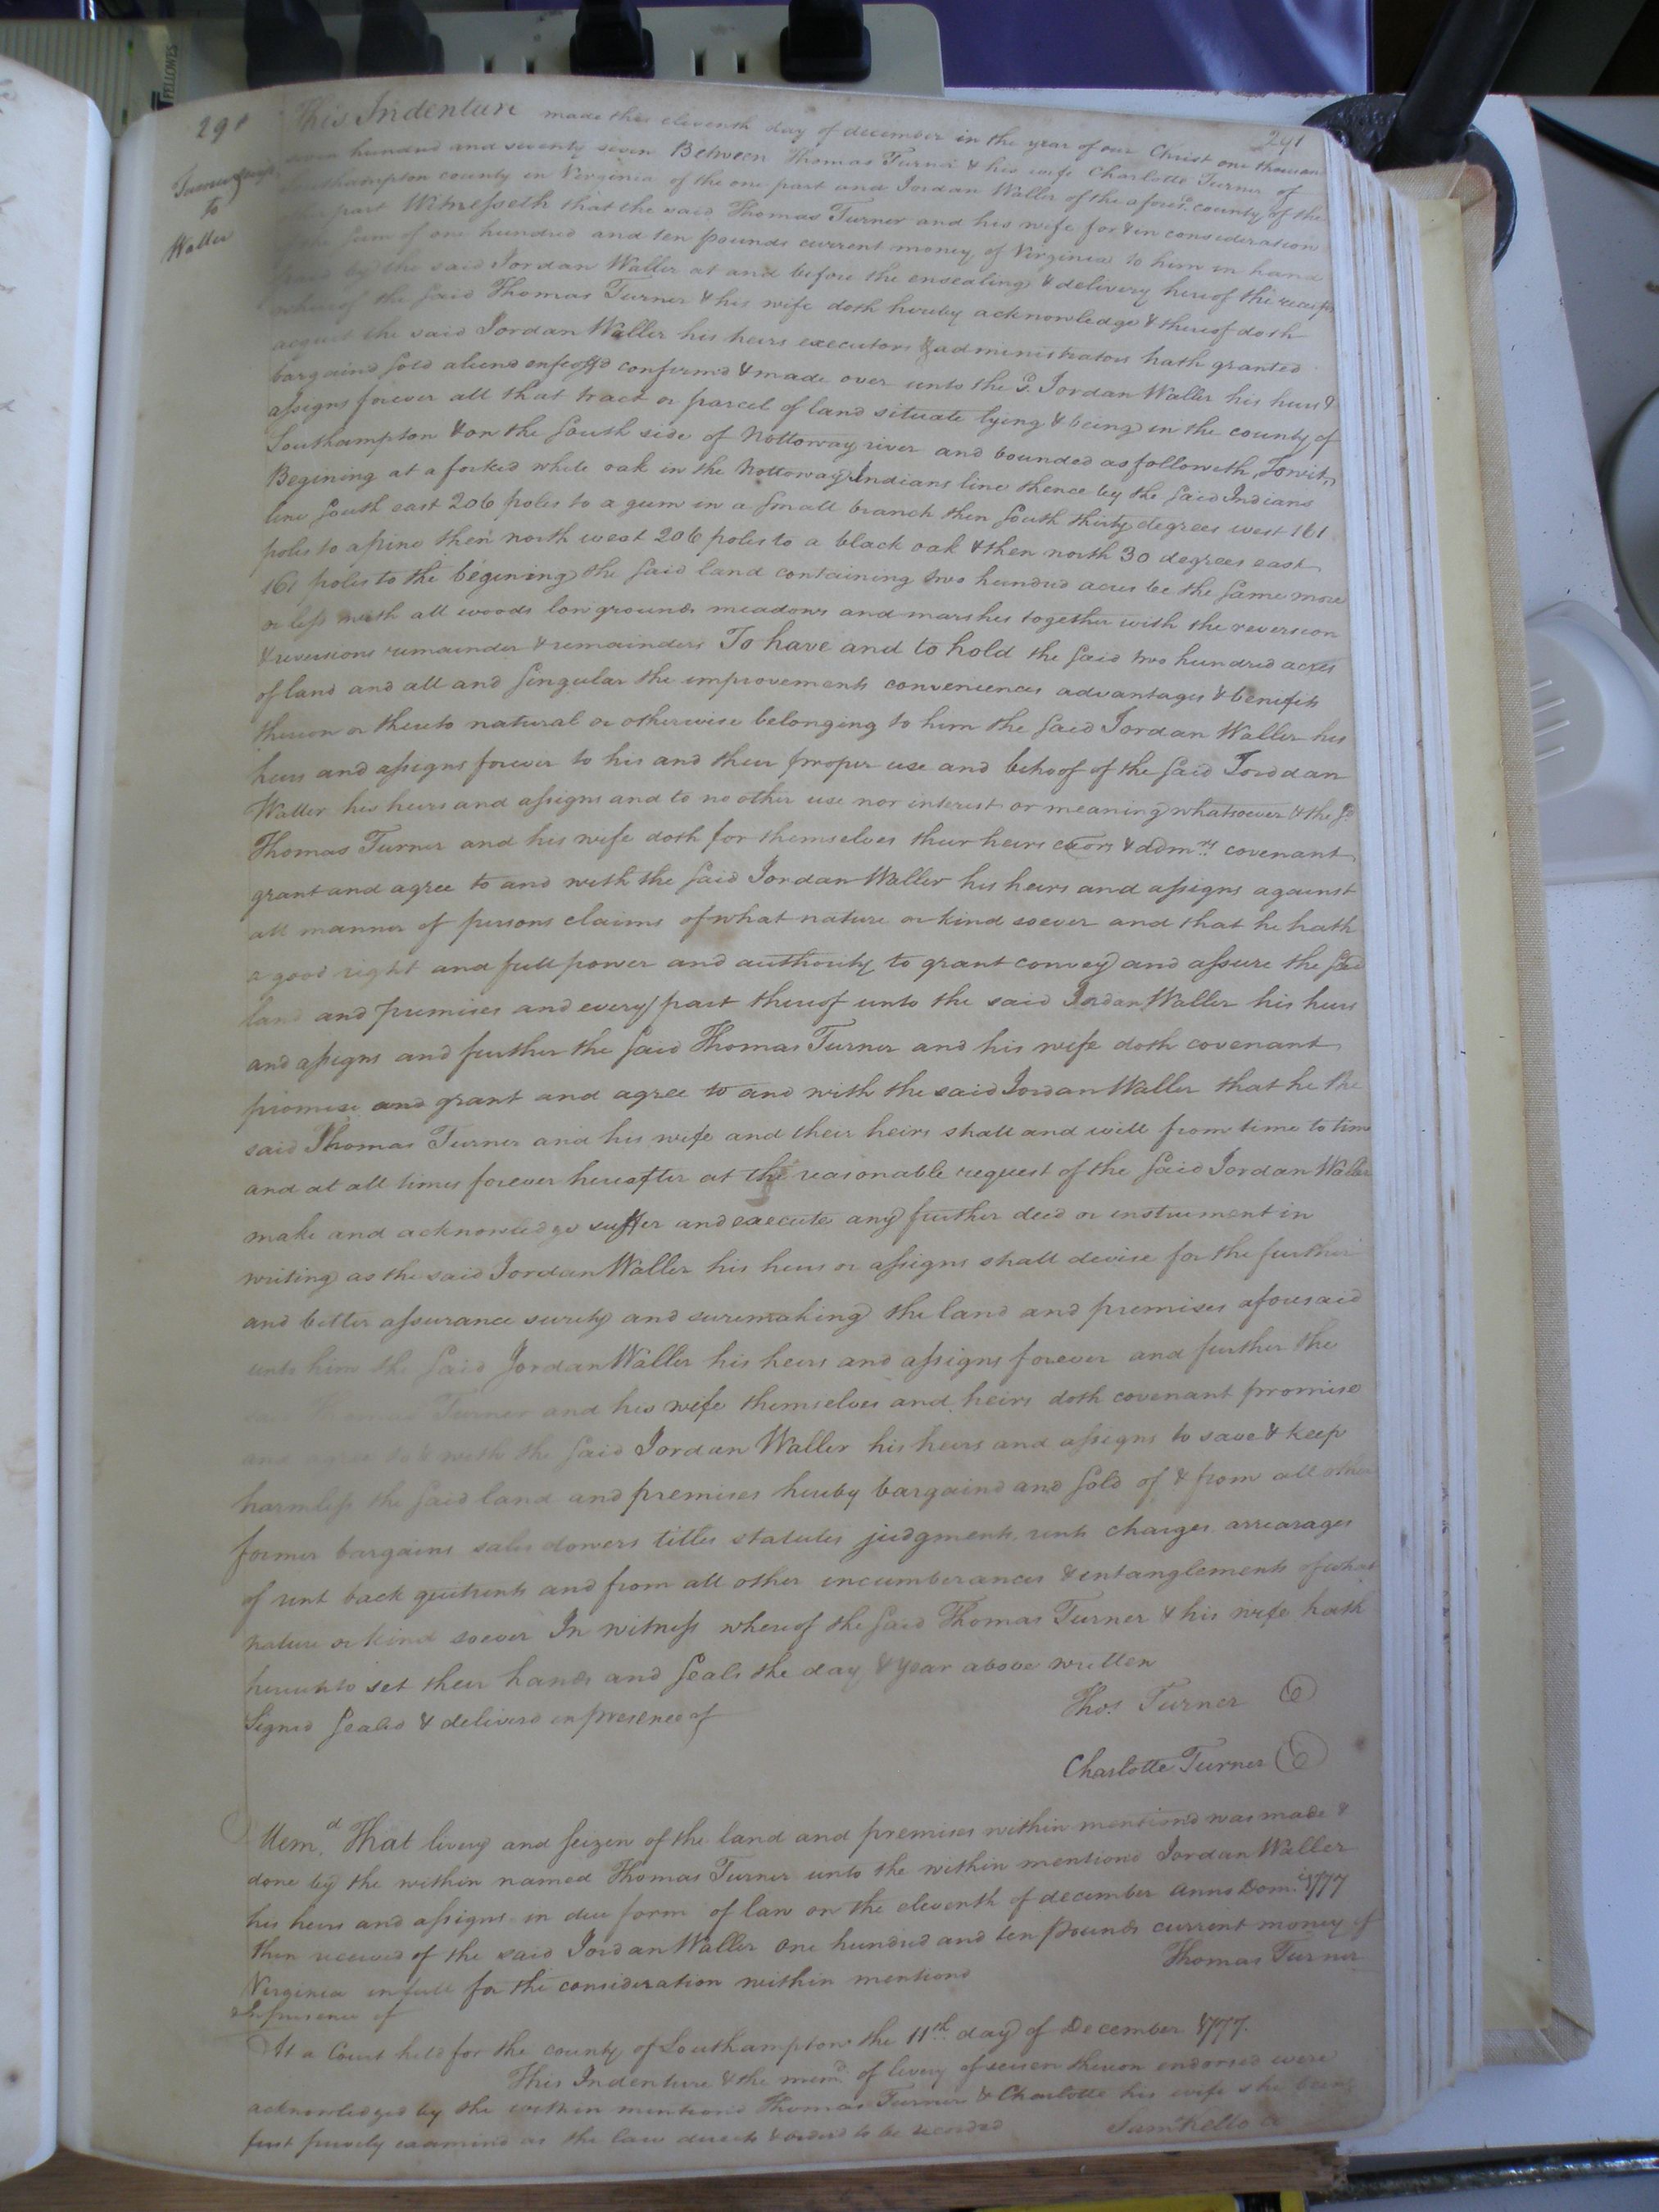 FELLOWES
291
291
Turner & wife
To
Waller
This Indenture made this eleventh day of december in the year of our Christ one thousand
seven hundred and seventy seven Between Thomas Turner & his wife Charlotte Turner of
Southampton county in Virginia of the one part and Jordan Waller of the afores.d county of the
other part Witnesseth that the said Thomas Turner and his wife for & in consideration
of the sum of one hundred and ten pounds current money of Virginia to him in hand
paid by the said Jordan Waller at and before the ensealing & delivery hereof the receipt
whereof the said Thomas Turner & his wife doth hereby acknowledge & thereof doth
acquit the said Jordan Waller his heirs executors & administrators hath granted
bargaind sold aliend enfeoffd confirmd & made over unto the s.d Jordan Waller his heirs &
assigns forever all that tract or parcel of land situate lying & being in the county of
Southampton & on the south side of Nottoway river and bounded as followeth, Towit,
Begining at a forked white oak in the Nottoway Indians line thence by the said Indians
line south east 206 poles to a gum in a small branch then south thirty degrees west 161
poles to a pine then north west 206 poles to a black oak & then north 30 degrees east
161 poles to the begining the said land containing two hundred acres be the same more
or less with all woods low grounds meadows and marshes together with the reversion
& reversions remainder & remainders To have and to hold the said two hundred acres
of land and all and singular the improvements conveniences advantages & benefits
thereon or thereto natural or otherwise belonging to him the said Jordan Waller his
heirs and assigns forever to his and their proper use and behoof of the said Jorddan
Waller his heirs and assigns and to no other use nor interest or meaning whatsoever & the s.d
Thomas Turner and his wife doth for themselves their heirs exors & adm.rs covenant
grant and agree to and with the said Jordan Waller his heirs and assigns against
all manner of persons claims of what nature or kind soever and that he hath
a good right and full power and authority to grant convey and assure the said
land and premises and every part thereof unto the said Jordan Waller his heirs
and assigns and further the said Thomas Turner and his wife doth covenant
promise and grant and agree to and with the said Jordan Waller that he the
said Thomas Turner and his wife and their heirs shall and will from time to time
and at all times forever hereafter at the reasonable request of the said Jordan Waller
make and acknowledge suffer and execute any further deed or instrument in
writing as the said Jordan Waller his heirs or assigns shall devise for the further
and better assurance surety and suremaking the land and premises aforesaid
unto him the said Jordan Waller his heirs and assigns forever and further the
said Thomas Turner and his wife themselves and heirs doth covenant promise
and agree to & with the said Jordan Waller his heirs and assigns to save & keep
harmless the said land and premises hereby bargaind and sold of & from all other
former bargains sales dowers titles statutes judgments rents charges arrearages
of rent back quitrents and from all other incumberances & entanglements of what
nature or kind soever In witness whereof the said Thomas Turner & his wife hath
hereunto set their hands and seals the day & year above written
Signd seald & deliverd in presence of
Tho.s Turner
Charlotte Turner
Mem.d That livery and seizen of the land and premises within mentiond was made &
done by the within named Thomas Turner unto the within mentiond Jordan Waller
his heirs and assigns in due form of law on the eleventh of december anno Dom. 1777
then received of the said Jordan Waller one hundred and ten pounds current money of
Virginia in full for the consideration within mentiond
Thomas Turner
In presence of
At a Court held for the county of Southampton the 11th day of December 1777.
This Indenture & the mem.d of livery of seisen thereon endorsed were
acknowledged by the within mentiond Thomas Turner & Charlotte his wife she being
first privily examind as the law directs & orderd to be recorded
Sam Kello